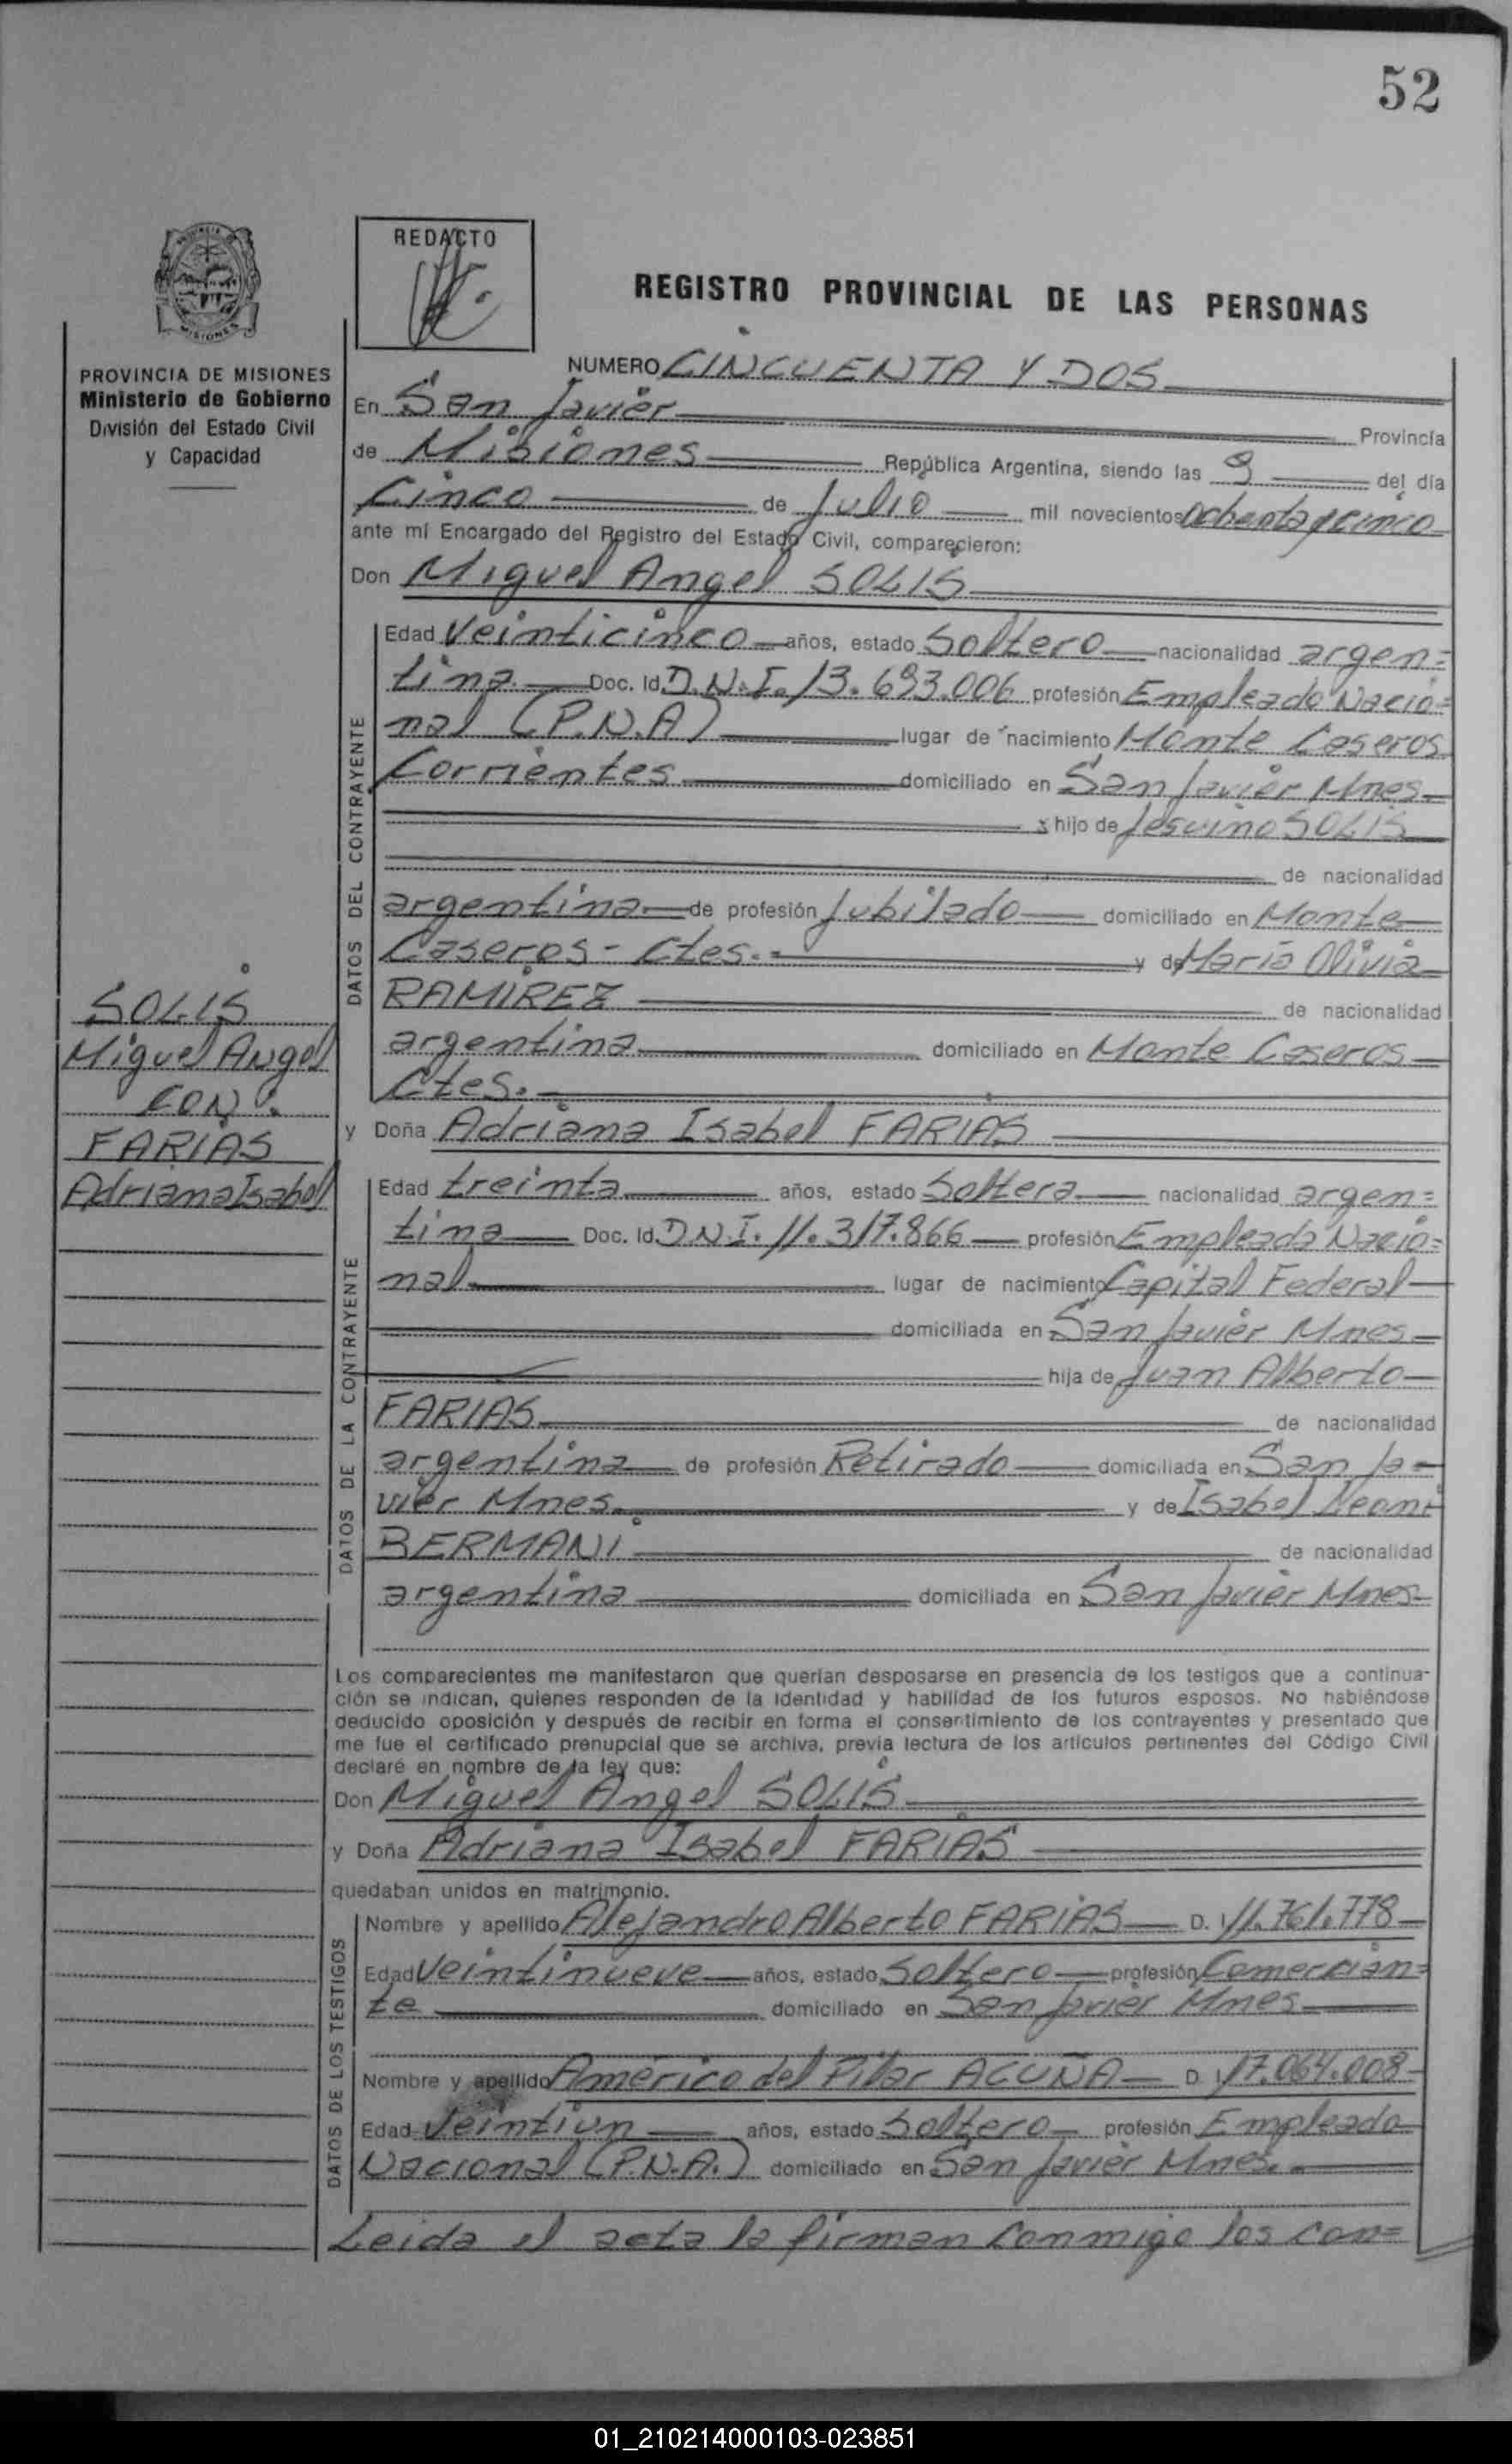 52
REDACTO
REGISTRO PROVINCIAL DE LAS PERSONAS
MISIONES
PROVINCIA DE MISIONES
Ministerio de Gobierno
División del Estado Civil
y Capacidad
NUMERO CINCUENTA Y DOS
En San Javier Provincia
de Misiones República Argentina, siendo las 9 del día
Cinco de Julio mil novecientos ochenta y cinco
ante mí Encargado del Registro del Estado Civil, comparecieron:
Don Miguel Angel SOLIS
DATOS DEL CONTRAYENTE
Edad Veinticinco años, estado Soltero nacionalidad argen=
tina. Doc. Id. D.N.I. 13.693.006 profesión Empleado Nacio=
nal (P.N.A) lugar de nacimiento Monte Caseros
Corrientes domiciliado en San Javier Mnes.
hijo de Jesuino SOLIS
de nacionalidad
argentina de profesión Jubilado domiciliado en Monte
Caseros - Ctes. y de María Olivia
RAMIREZ de nacionalidad
argentina domiciliado en Monte Caseros
Ctes.
SOLIS
Miguel Angel
CON
FARIAS
Adriana Isabel
y Doña Adriana Isabel FARIAS
DATOS DE LA CONTRAYENTE
Edad treinta años, estado Soltera nacionalidad argen=
tina Doc. Id. D.N.I. 11.317.866 profesión Empleada Nacio=
nal lugar de nacimiento Capital Federal
domiciliada en San Javier Mnes
hija de Juan Alberto
FARIAS de nacionalidad
argentina de profesión Retirado domiciliada en San Ja=
vier Mnes. y de Isabel
BERMANI de nacionalidad
argentina domiciliada en San Javier Mnes
Los comparecientes me manifestaron que querían desposarse en presencia de los testigos que a continua-
ción se indican, quienes responden de la identidad y habilidad de los futuros esposos. No habiéndose
deducido oposición y después de recibir en forma el consentimiento de los contrayentes y presentado que
me fue el certificado prenupcial que se archiva, previa lectura de los artículos pertinentes del Código Civil
declaré en nombre de la ley que:
Don Miguel Angel SOLIS
y Doña Adriana Isabel FARIAS
quedaban unidos en matrimonio.
DATOS DE LOS TESTIGOS
Nombre y apellido Alejandro Alberto FARIAS D. I. 11.761.778
Edad Veintinueve años, estado Soltero profesión Comercian=
te domiciliado en San Javier Mnes
Nombre y apellido Américo del Pilar ACUÑA D. I. 17.064.008
Edad Veintiun años, estado Soltero profesión Empleado
Nacional (P.N.A.) domiciliado en San Javier Mnes.
Leida el acta la firman conmigo los con=
01_210214000103-023851